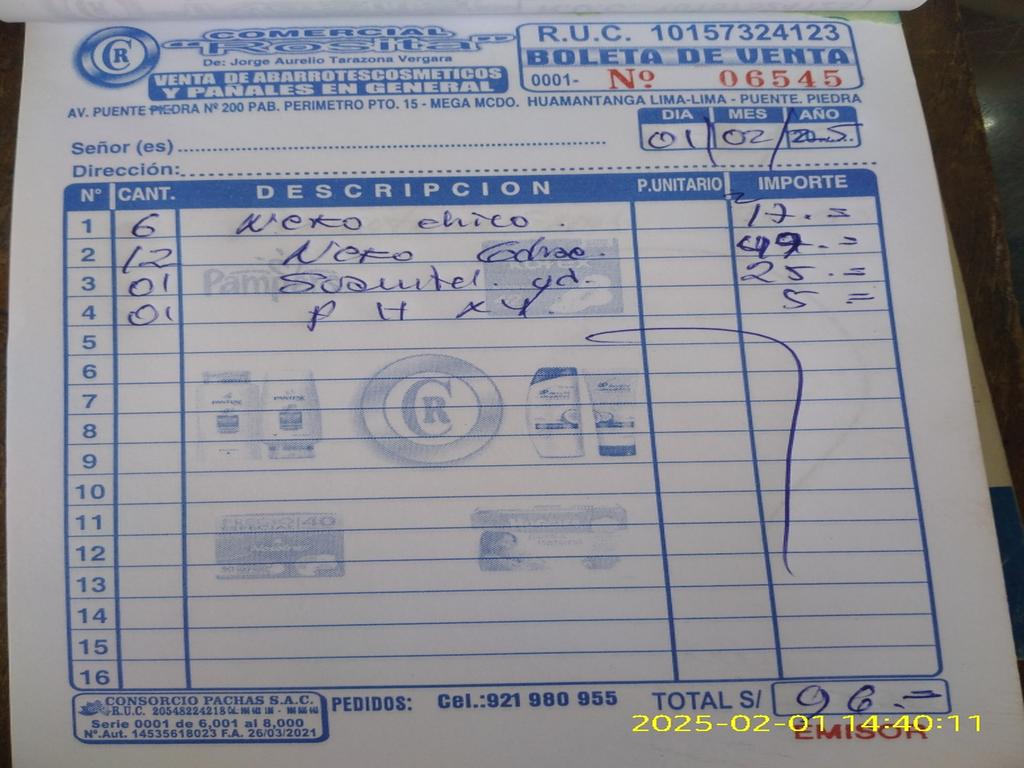 COMERCIAL
"Rosita"
De: Jorge Aurelio Tarazona Vergara
VENTA DE ABARROTESCOSMETICOS
Y PAÑALES EN GENERAL
R.U.C. 10157324123
BOLETA DE VENTA
0001- Nº 06545
AV. PUENTE PIEDRA Nº 200 PAB. PERIMETRO PTO. 15 - MEGA MCDO. HUAMANTANGA LIMA-LIMA - PUENTE. PIEDRA
DIA MES AÑO
01 02 2025
Señor (es)
Dirección:
Nº CANT. DESCRIPCION P.UNITARIO IMPORTE
1 6 Neko chico. 17.=
2 12 Neko 49.=
3 01 25.=
4 01 P H X4 5 =
5
6
7
8
9
10
11
12
13
14
15
16
CONSORCIO PACHAS S.A.C.
R.U.C. 20548224218
Serie 0001 de 6,001 al 8,000
Nº.Aut. 14535618023 F.A. 26/03/2021
PEDIDOS: Cel.:921 980 955
TOTAL S/ 96.=
2025-02-01 14:40:11
EMISOR